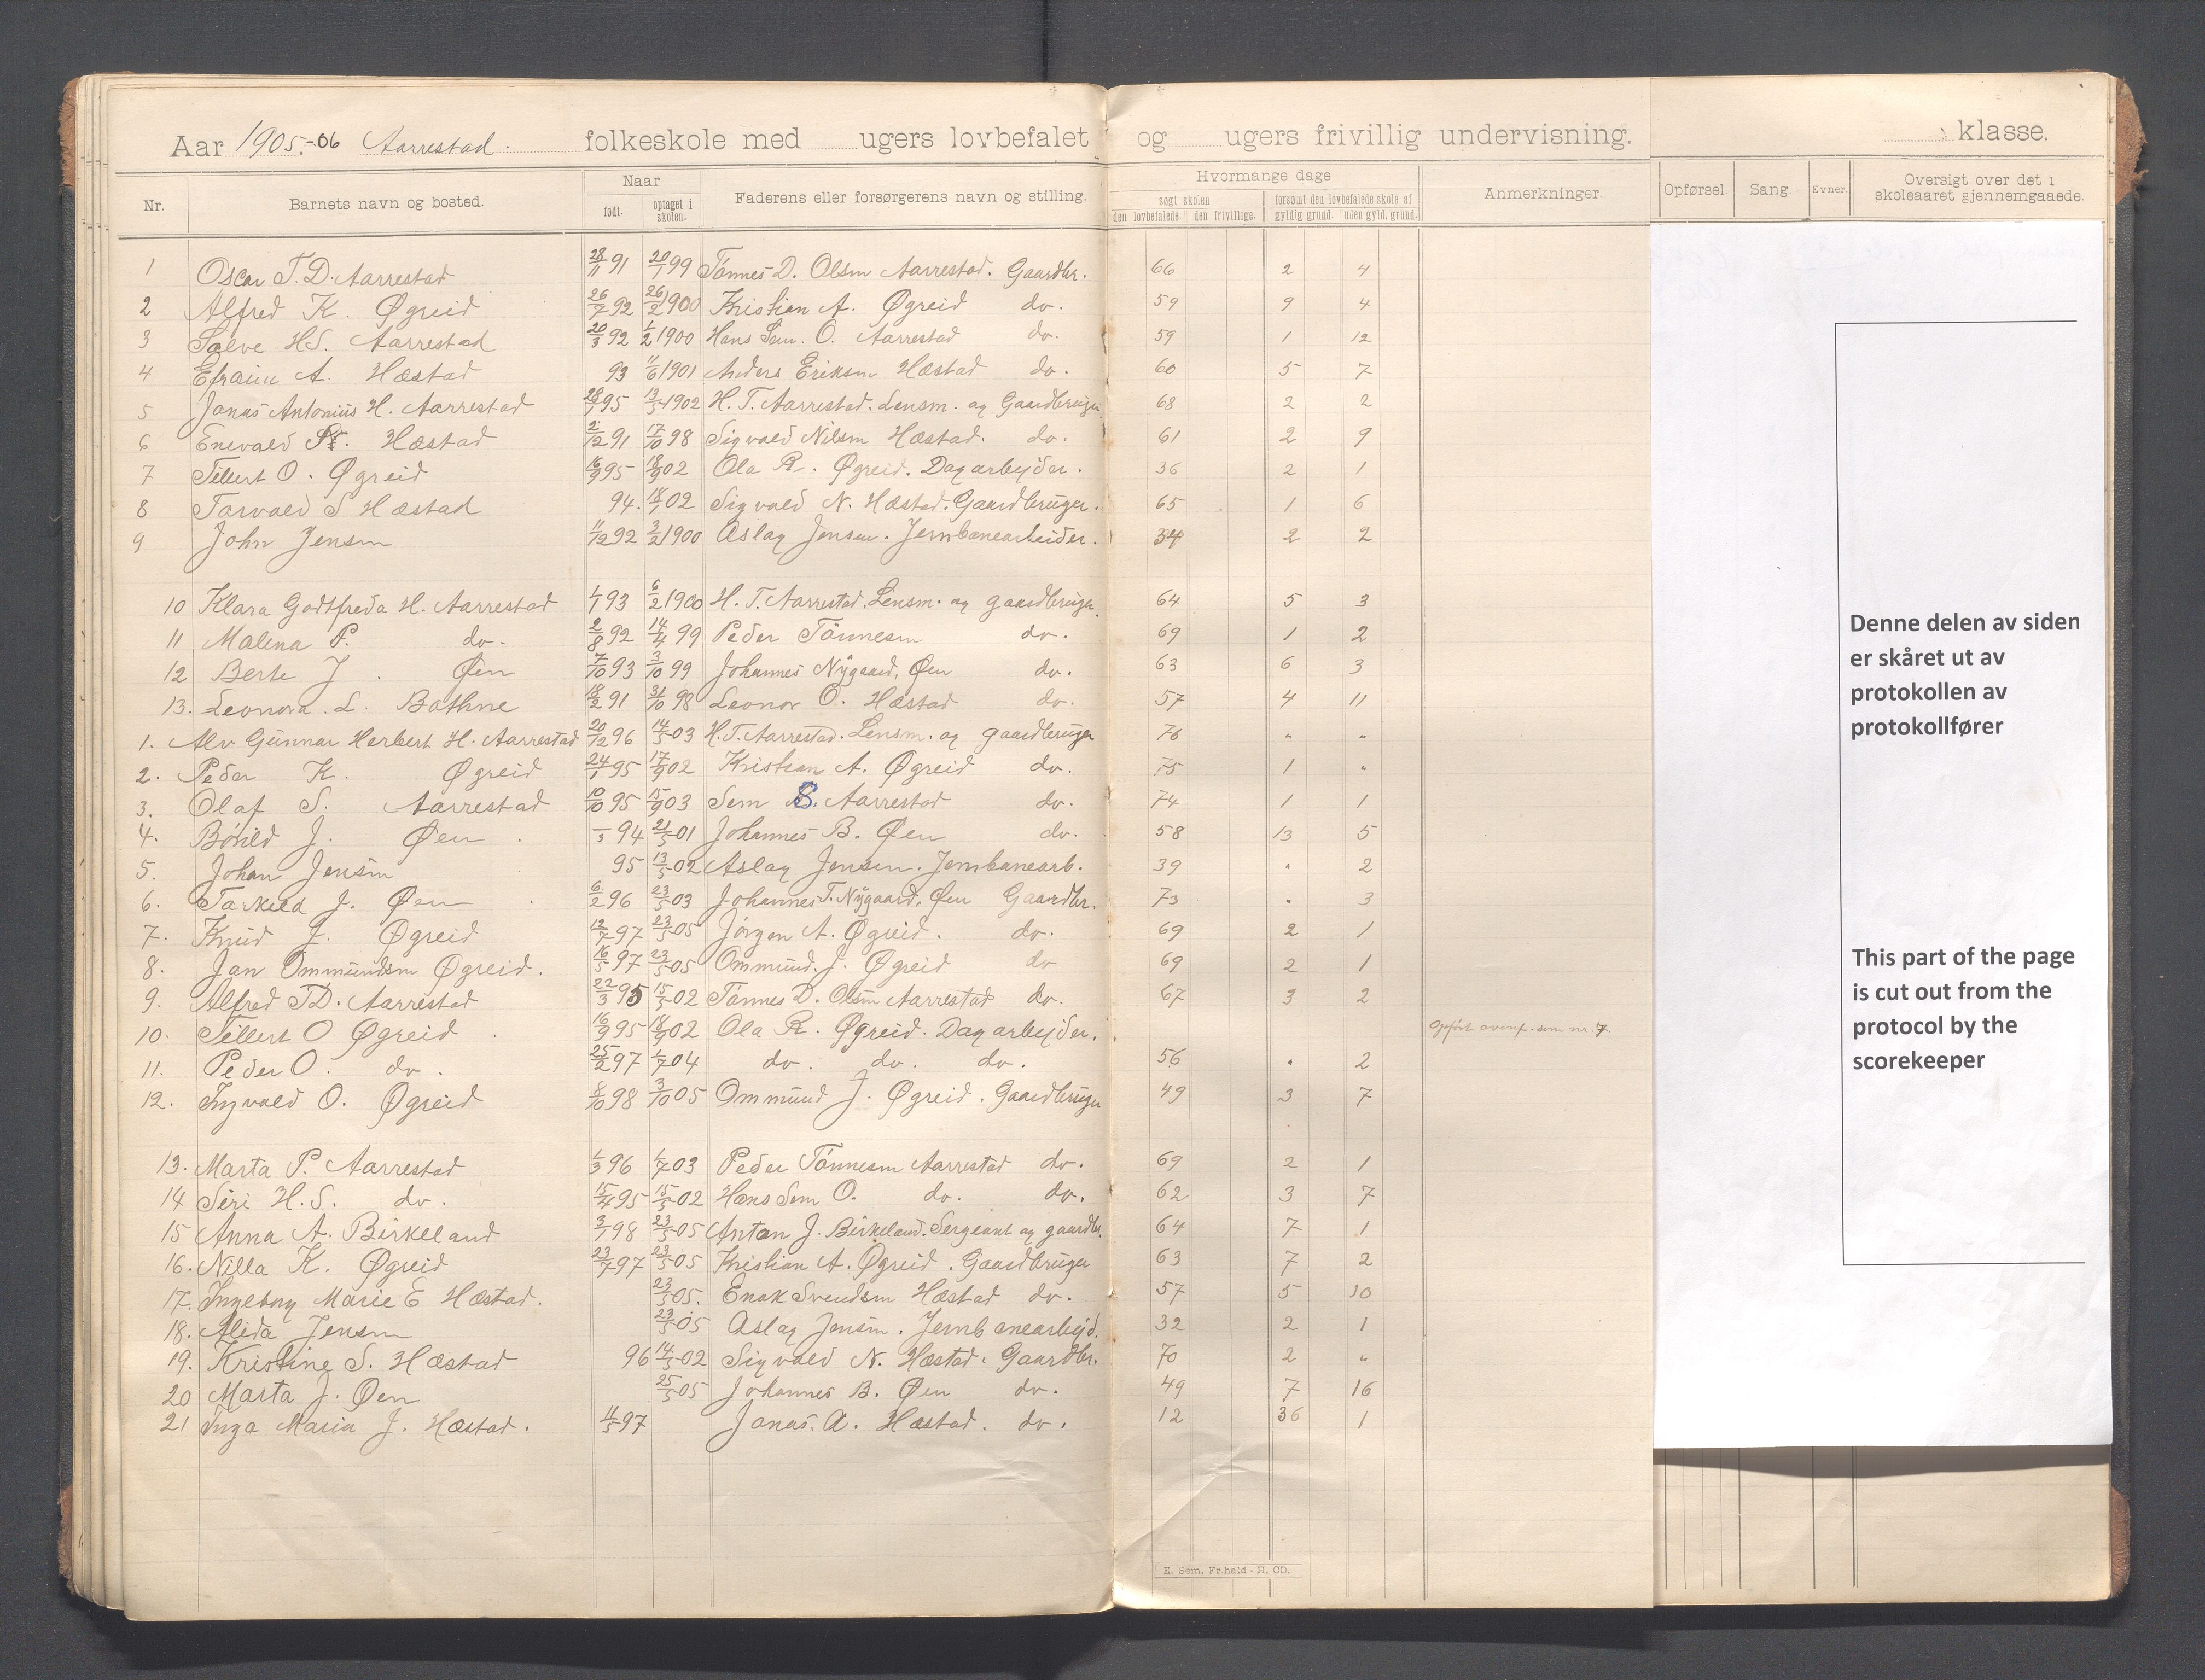 Aar 1905-06 Aarrestad folkeskole med ugers lovbefalet og ugers frivillig undervisning. klasse.
Nr. Barnets navn og bosted. Naar født. optaget i skolen. Faderens eller forsørgerens navn og stilling. Hvormange dage søgt skolen den lovbefalede den frivillige. forsømt den lovbefalede skole af gyldig grund. uden gyld. grund. Anmerkninger. Opførsel. Sang. Evner. Oversigt over det i skoleaaret gjennemgaaede.
1 Oscar T. D. Aarrestad 28/11 91 20/1 99 Tønnes D. Olsen Aarrestad. Gaardbr. 66 2 4
2 Alfred K. Øgreid 26/7 92 26/2 1900 Kristian A. Øgreid do. 59 9 4
3 Salve H.S. Aarrestad 20/3 92 1/2 1900 Hans Sem. O. Aarrestad do. 59 1 12
4 Efraim A. Hæstad 93 11/6 1901 Anders Eriksen Hæstad do. 60 5 7
5 Jonas Antonius H. Aarrestad 28/1 95 13/5 1902 H. T. Aarrestad. Lensm. og Gaardbruger 68 2 2
6 Enevald S. Hæstad 2/12 91 17/10 98 Sigvald Nilsen Hæstad. do. 61 2 9
7 Tillert O. Øgreid 16/9 95 18/9 02 Ola R. Øgreid. Dagarbejder. 36 2 1
8 Torvald S Hæstad 94. 18/1 02 Sigvald N. Hæstad. Gaardbruger. 65 1 6
9 John Jensen 11/12 92 3/2 1900 Aslag Jensen. Jernbanearbeider. 34 2 2
10 Klara Godtfreda H. Aarrestad 1/1 93 6/2 1900 H. T. Aarrestad. Lensm. og gaardbruger. 64 5 3
11 Malena P. do. 2/8 92 14/4 99 Peder Tønnesen do. 69 1 2
12 Berte J. Øen 7/10 93 3/10 99 Johannes Nygaard, Øen do. 63 6 3
13. Leonora. L. Bothne 18/2 91 31/10 98 Leonor O. Hæstad do. 57 4 11
1. Alv Gunnar Herbert H. Aarrestad 20/12 96 14/5 03 H. T. Aarrestad. Lensm. og gaardbruger 76 " "
2. Peder K. Øgreid 24/1 95 17/9 02 Kristian A. Øgreid do. 75 1 "
3. Olaf S. Aarrestad 10/10 95 15/9 03 Sem S. Aarrestad do. 74 1 1
4. Børild J. Øen 94 21/5 01 Johannes B. Øen do. 58 13 5
5. Johan Jensen 95 13/5 02 Aslag Jensen. Jernbanearb. 39 " 2
6. Torkeld J. Øen 6/2 96 23/5 03 Johannes T. Nygaard, Øen Gaardbr. 73 " 3
7. Knud J. Øgreid 12/7 97 23/5 05 Jørgen A. Øgreid. do. 69 2 1
8. Jan Ommundsen Øgreid. 16/5 97 23/5 05 Ommund. J. Øgreid do 69 2 1
9. Alfred T.D. Aarrestad 22/3 95 15/5 02 Tønnes D. Olsen Aarrestad do. 67 3 2
10. Tillert O Øgreid 16/9 95 18/9 02 Ola R. Øgreid. Dagarbejder. Opført ovenf. som nr. 7
11. Peder O. do. 25/2 97 1/7 04 do. do. do. 56 " 2
12. Ingvald O. Øgreid 8/10 98 3/10 05 Ommund J. Øgreid. Gaardbruger 49 3 7
13. Marta P. Aarrestad 1/3 96 1/7 03 Peder Tønnesen Aarrestad do. 69 2 1
14 Siri H. S. do. 15/4 95 15/5 02 Hans Sem O. do. do. 62 3 7
15 Anna A. Birkeland 3/1 98 23/5 05 Anton J. Birkeland. Sergeant og gaardbr. 64 7 1
16. Nilla K. Øgreid 23/7 97 23/5 05 Kristian A. Øgreid. Gaardbruger 63 7 2
17. Ingeborg Marie E Hæstad. 23/5 05. Enok Svendsen Hæstad do. 57 5 10
18. Alida Jensen 23/5 05 Aslag Jensen. Jernbanearbejd. 32 2 1
19. Kristine S. Hæstad 96 14/5 02 Sigvald N. Hæstad. Gaardbr. 70 2 "
20 Marta J. Øen 25/5 05 Johannes B. Øen do. 49 7 16
21 Inga Maria J. Hæstad. 4/5 97 Jonas. A. Hæstad. do. 12 36 1
E. Sem, Fr.hald - H. OD.
Denne delen av siden
er skåret ut av
protokollen av
protokollfører
This part of the page
is cut out from the
protocol by the
scorekeeper